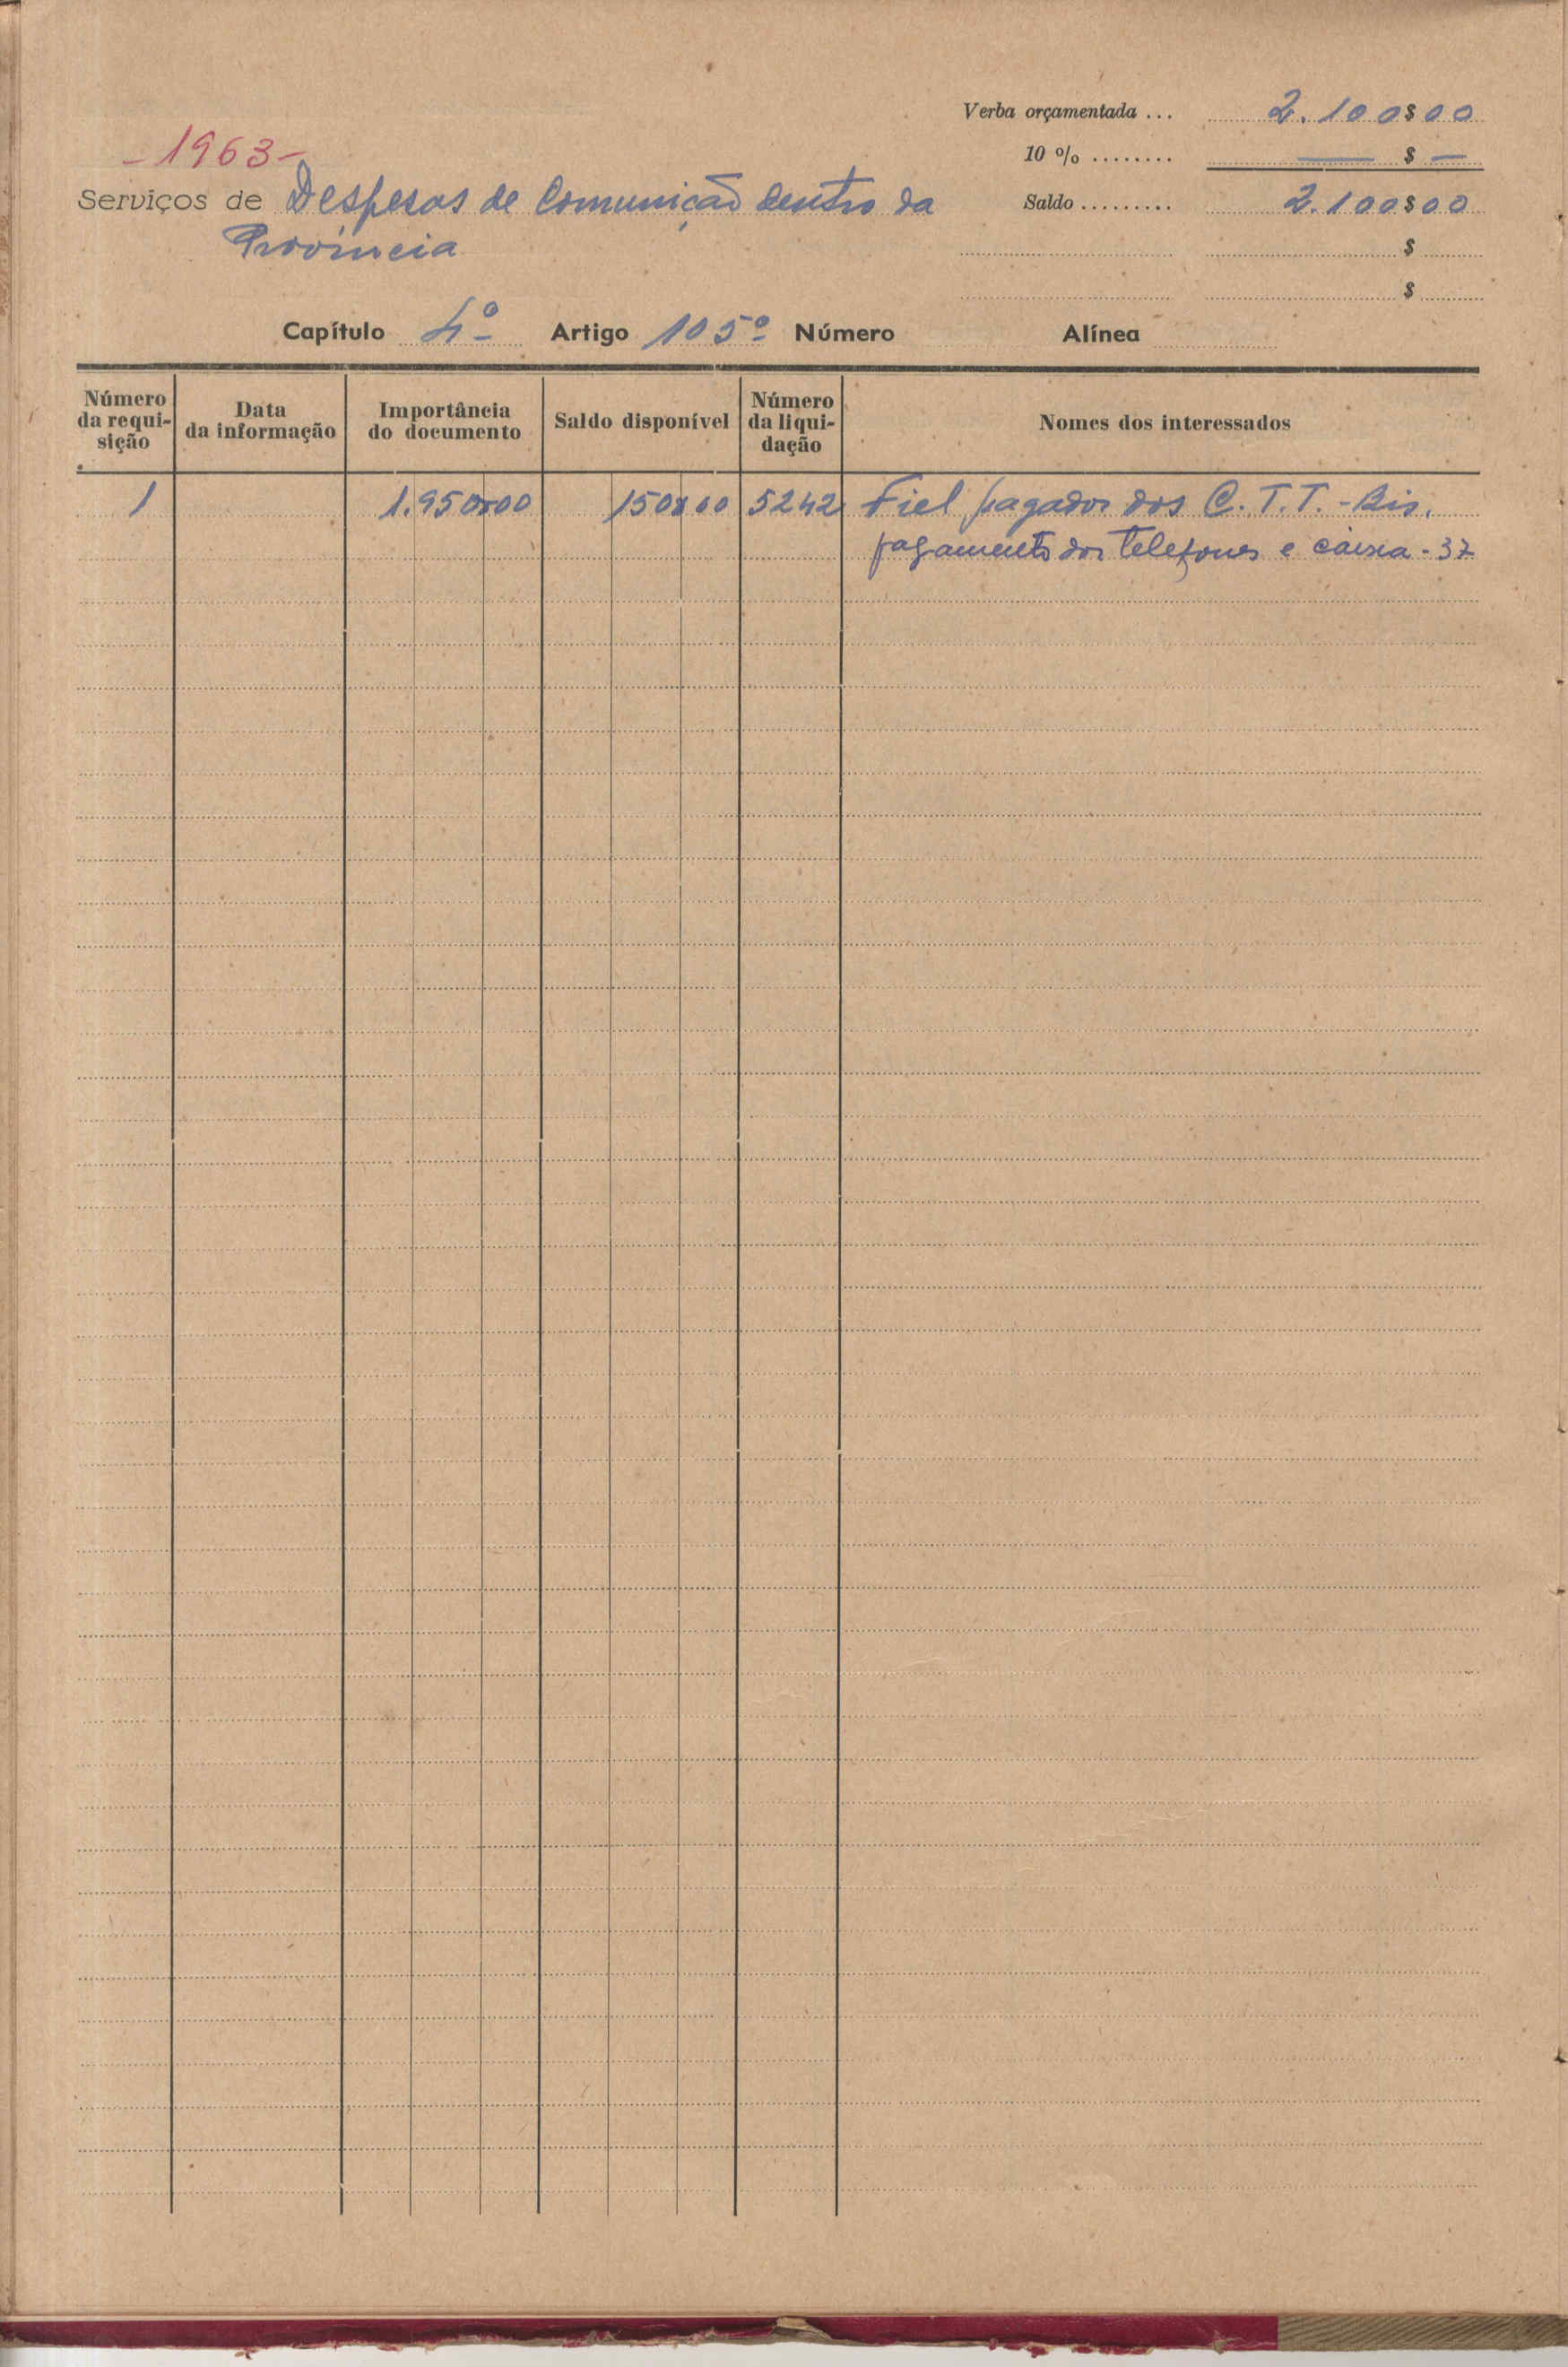 Verba orçamentada ... 2.100$00
- 1963 -
10 % ........ — $ —
Serviços de Despesas de Comunição dentro da
Saldo ......... 2.100$00
Província
$
$
Capítulo 4º Artigo 105º Número Alínea
Número da requi- sição
Data da informação
Importância do documento
Saldo disponível
Número da liqui- dação
Nomes dos interessados
1 1.950$00 150$00 5242 Fiel pagador dos C.T.T. - Bis.
pagamento dos telefones e caixa - 37